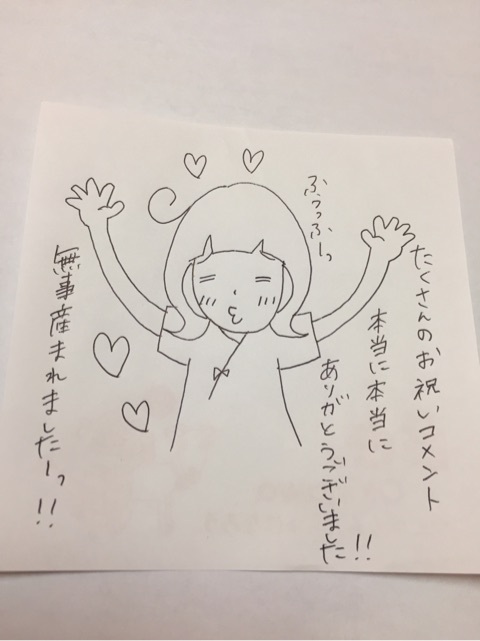 たくさんのお祝いコメント
本当に本当に
ありがとうございました!!
ふぅっふーっ
無事産まれましたーっ!!